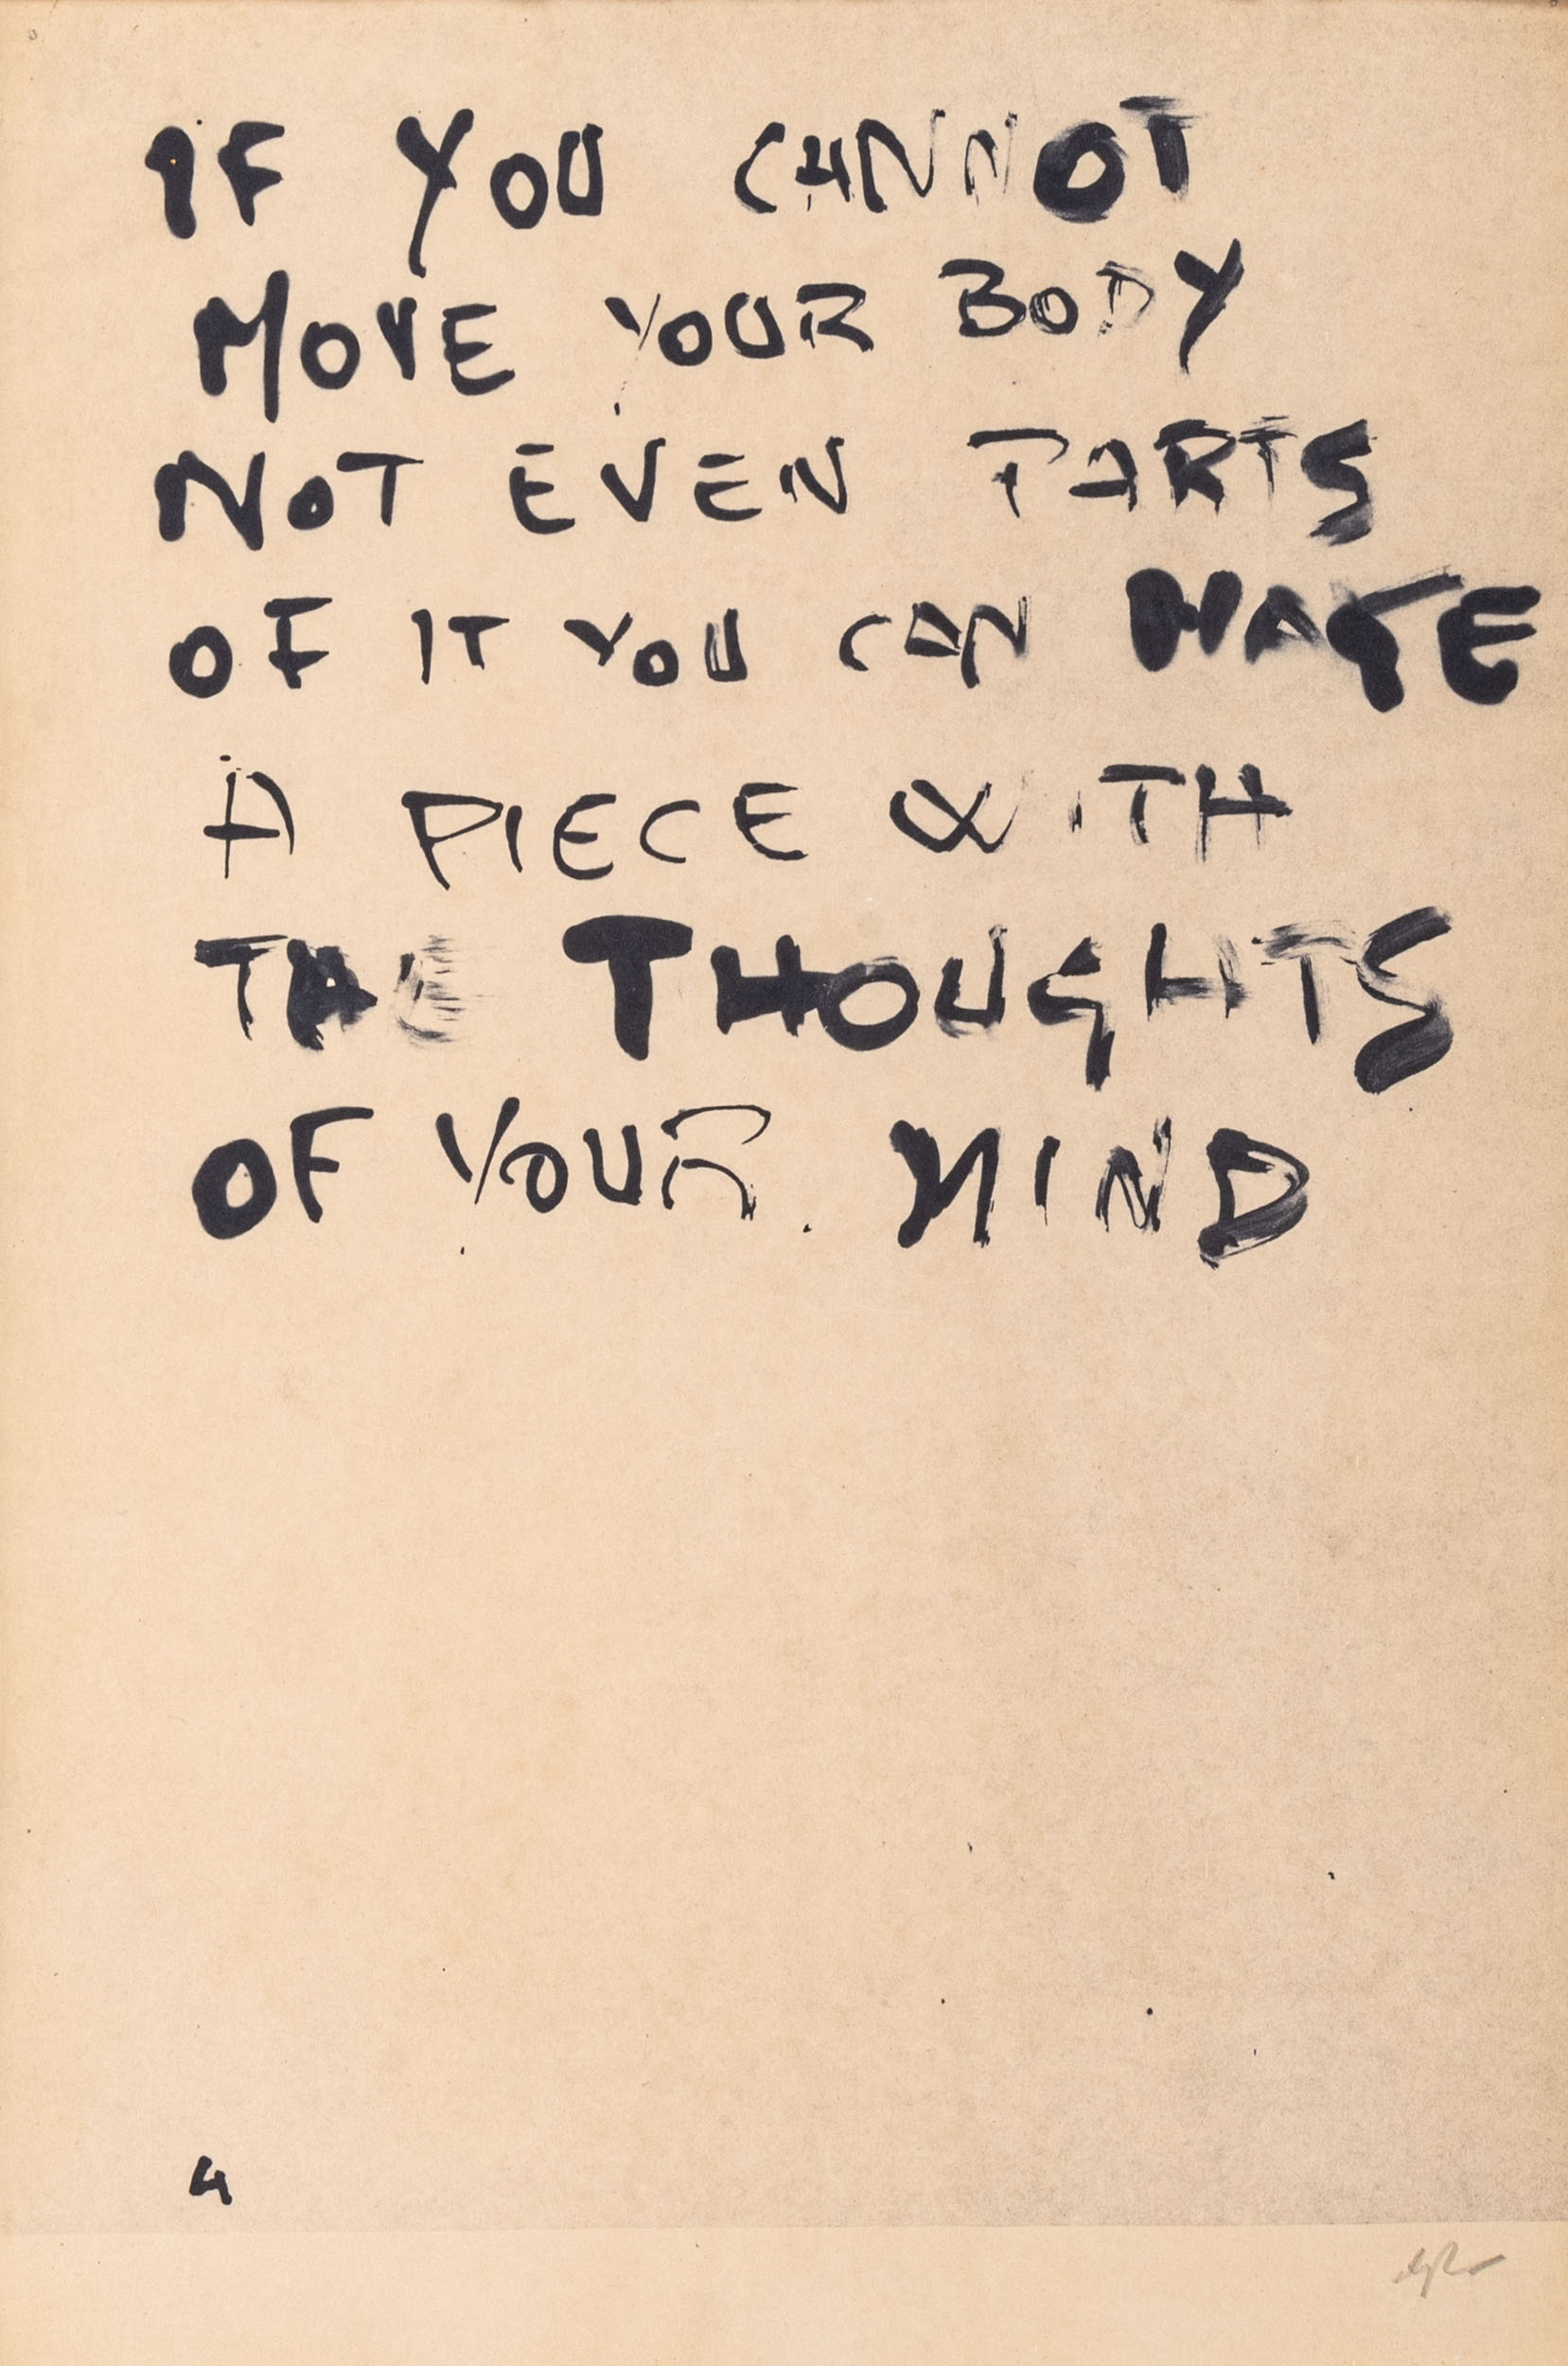 IF YOU CANNOT
MOVE YOUR BODY
NOT EVEN PARTS
OF IT YOU CAN MAKE
A PIECE WITH
THE THOUGHTS
OF YOUR MIND
4